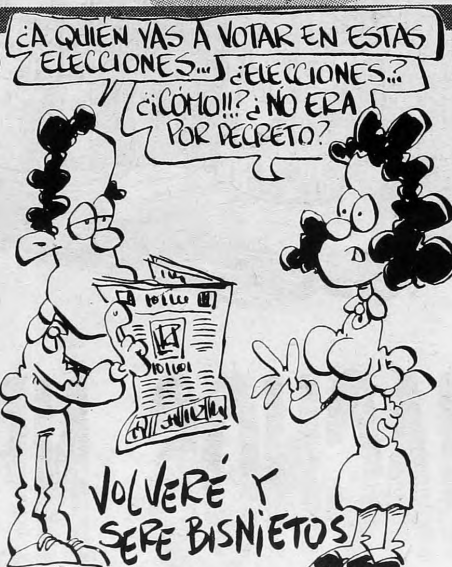 ¿A QUIÉN VAS A VOTAR EN ESTAS
ELECCIONES...
¿ELECCIONES..?
¿¡CÓMO!!? ¿NO ERA
POR DECRETO?
VOLVERÉ Y
SERE BISNIETOS